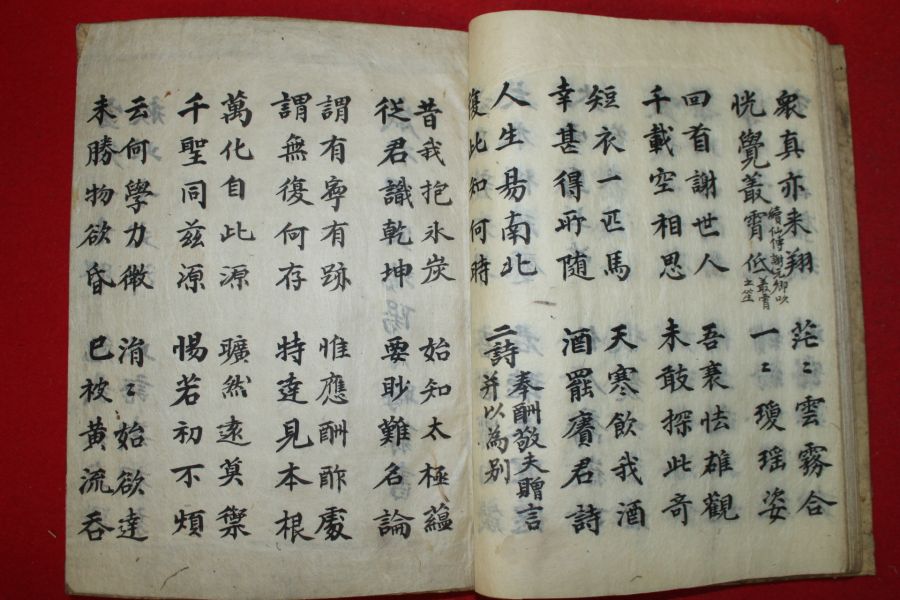 衆真亦来翔
恍覺叢霄低
續仙傳謝元卿吹
叢霄之笙
茫〻雲霧合
一〻瓊瑶姿
回首謝世人
千載空相思
吾衰怯雄觀
未敢探此奇
短衣一匹馬
幸甚得所随
天寒飲我酒
酒罷賡君詩
人生易南北
復此知何時
二詩
奉酬敬夫贈言
并以為别
昔我抱氷炭
從君識乾坤
始知太極蘊
要眇難名論
謂有寧有跡
謂無復何存
惟應酬酢處
特達見本根
萬化自此源
千聖同茲源
曠然遠莫禦
惕若初不煩
云何學力微
未勝物欲昏
涓〻始欲達
已被黄流呑